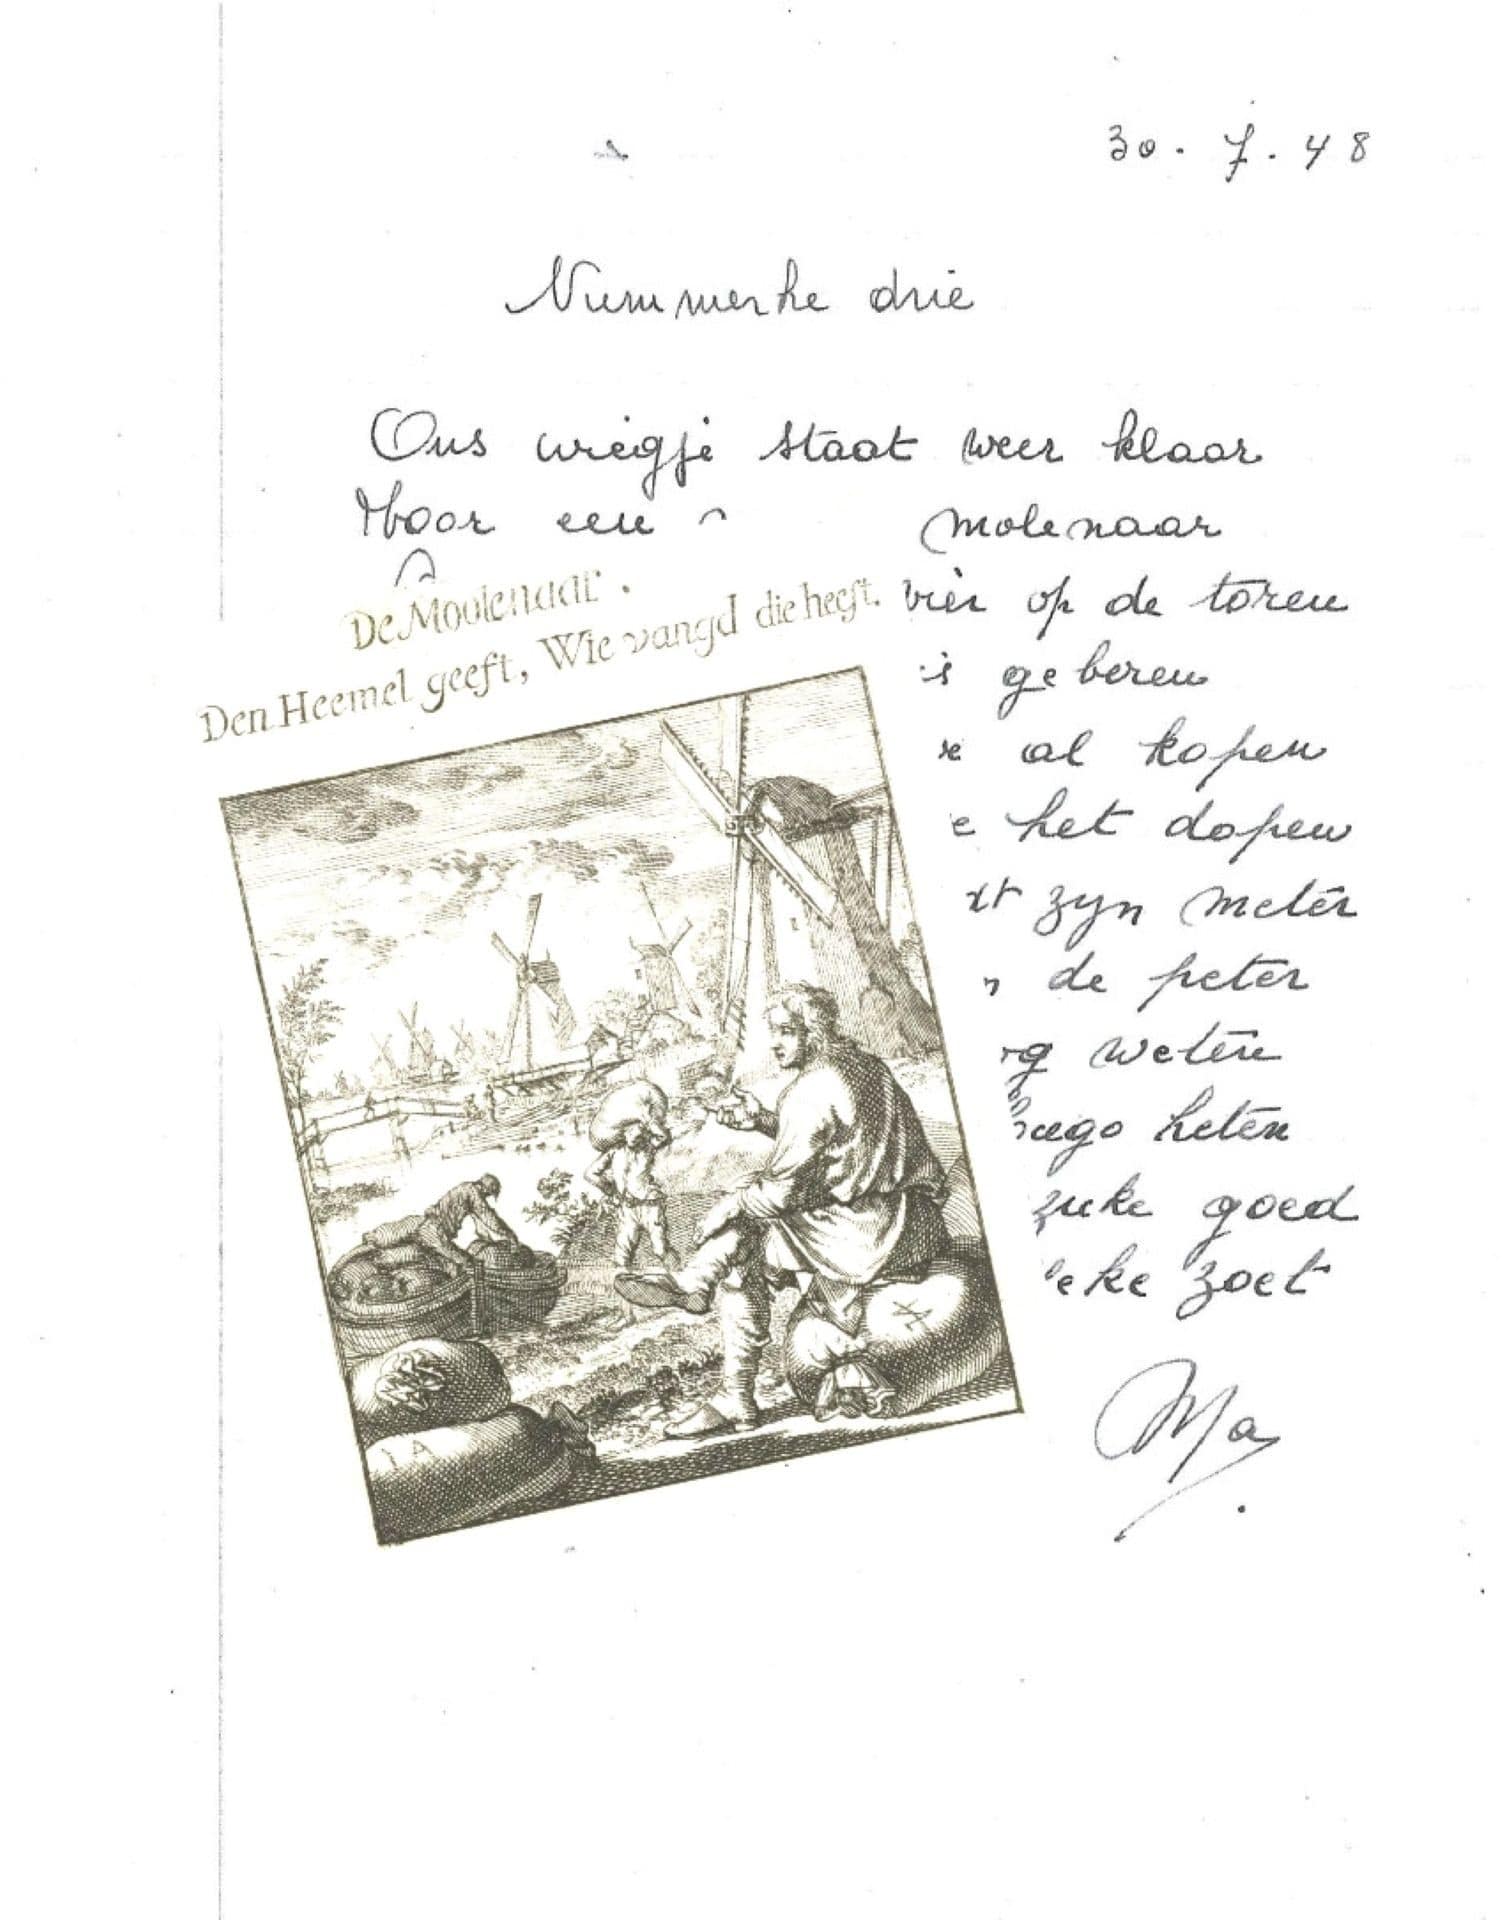 30. 7. 48
Nummerke drie
Ons wiegje staat weer klaar
Voor een molenaar
op de toren
geberen
al kopen
het dopen
zyn meter
de peter
weten
heten
goed
zoet
Ma
De Moolenaar.
Den Heemel geeft, Wie vangd die heeft.